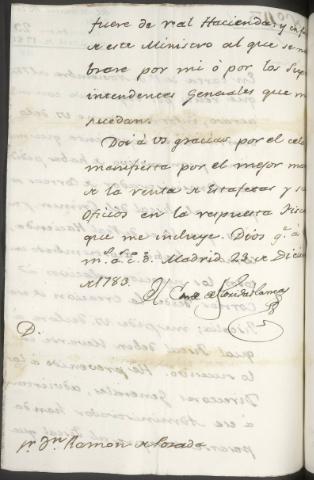 fuere de real Hacienda, y en su
a este Ministro al que se nom
brare por mi ó por los Sup
intendentes Generales que me
sucedan.
Doi á VS gracias por el celo
manifiesta por el mejor
a la renta de Estafetas y sus
Oficios en la respuesta Fiscal
que me incluye. Dios g.e á
m.s a.s Madrid 23 de Diciem
de 1783.
El Conde de Floridablanca
D.
S.r D.n Ramon de Posada